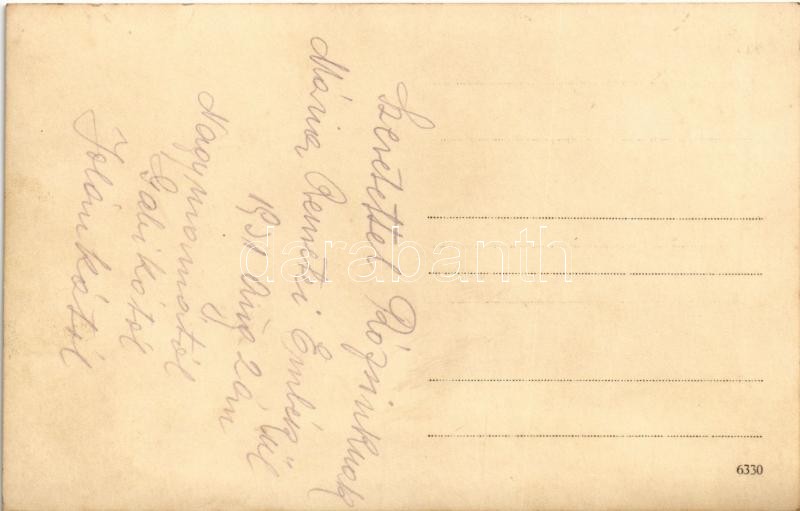 Szeretettel Rózsinknak
Mária Remetei Emlék
ül
1931 Aug 2 án
Nagymamatól
Gabikától
Jolánkától
darabanth
6330